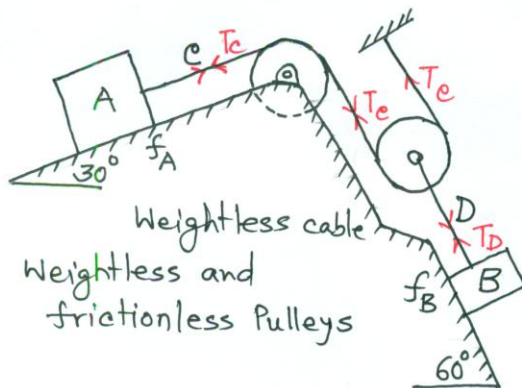 C
Tc
A
Te
Te
30°
fA
D
TD
Weightless cable
Weightless and
frictionless Pulleys
fB
B
60°